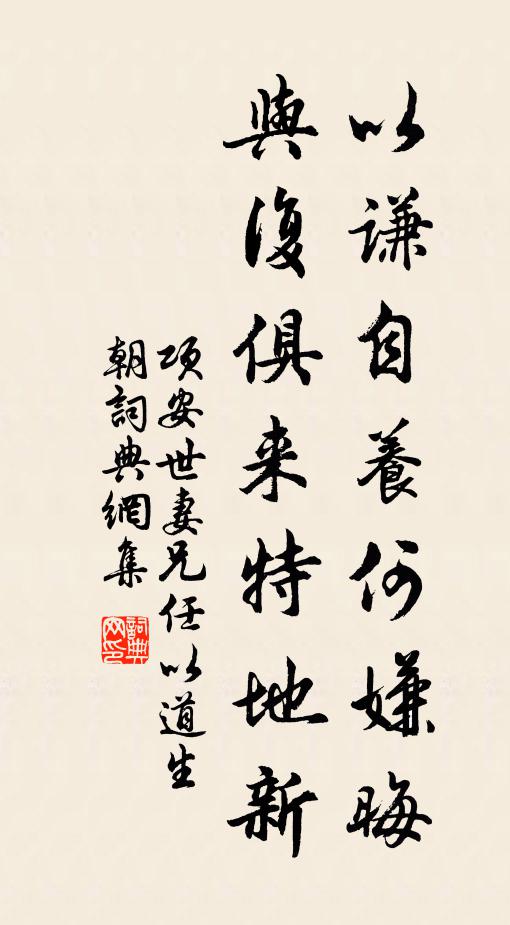 以謙自養何嫌晦
與復俱来特地新
項安世妻兄任以道生
朝詞典網集
詞典网印